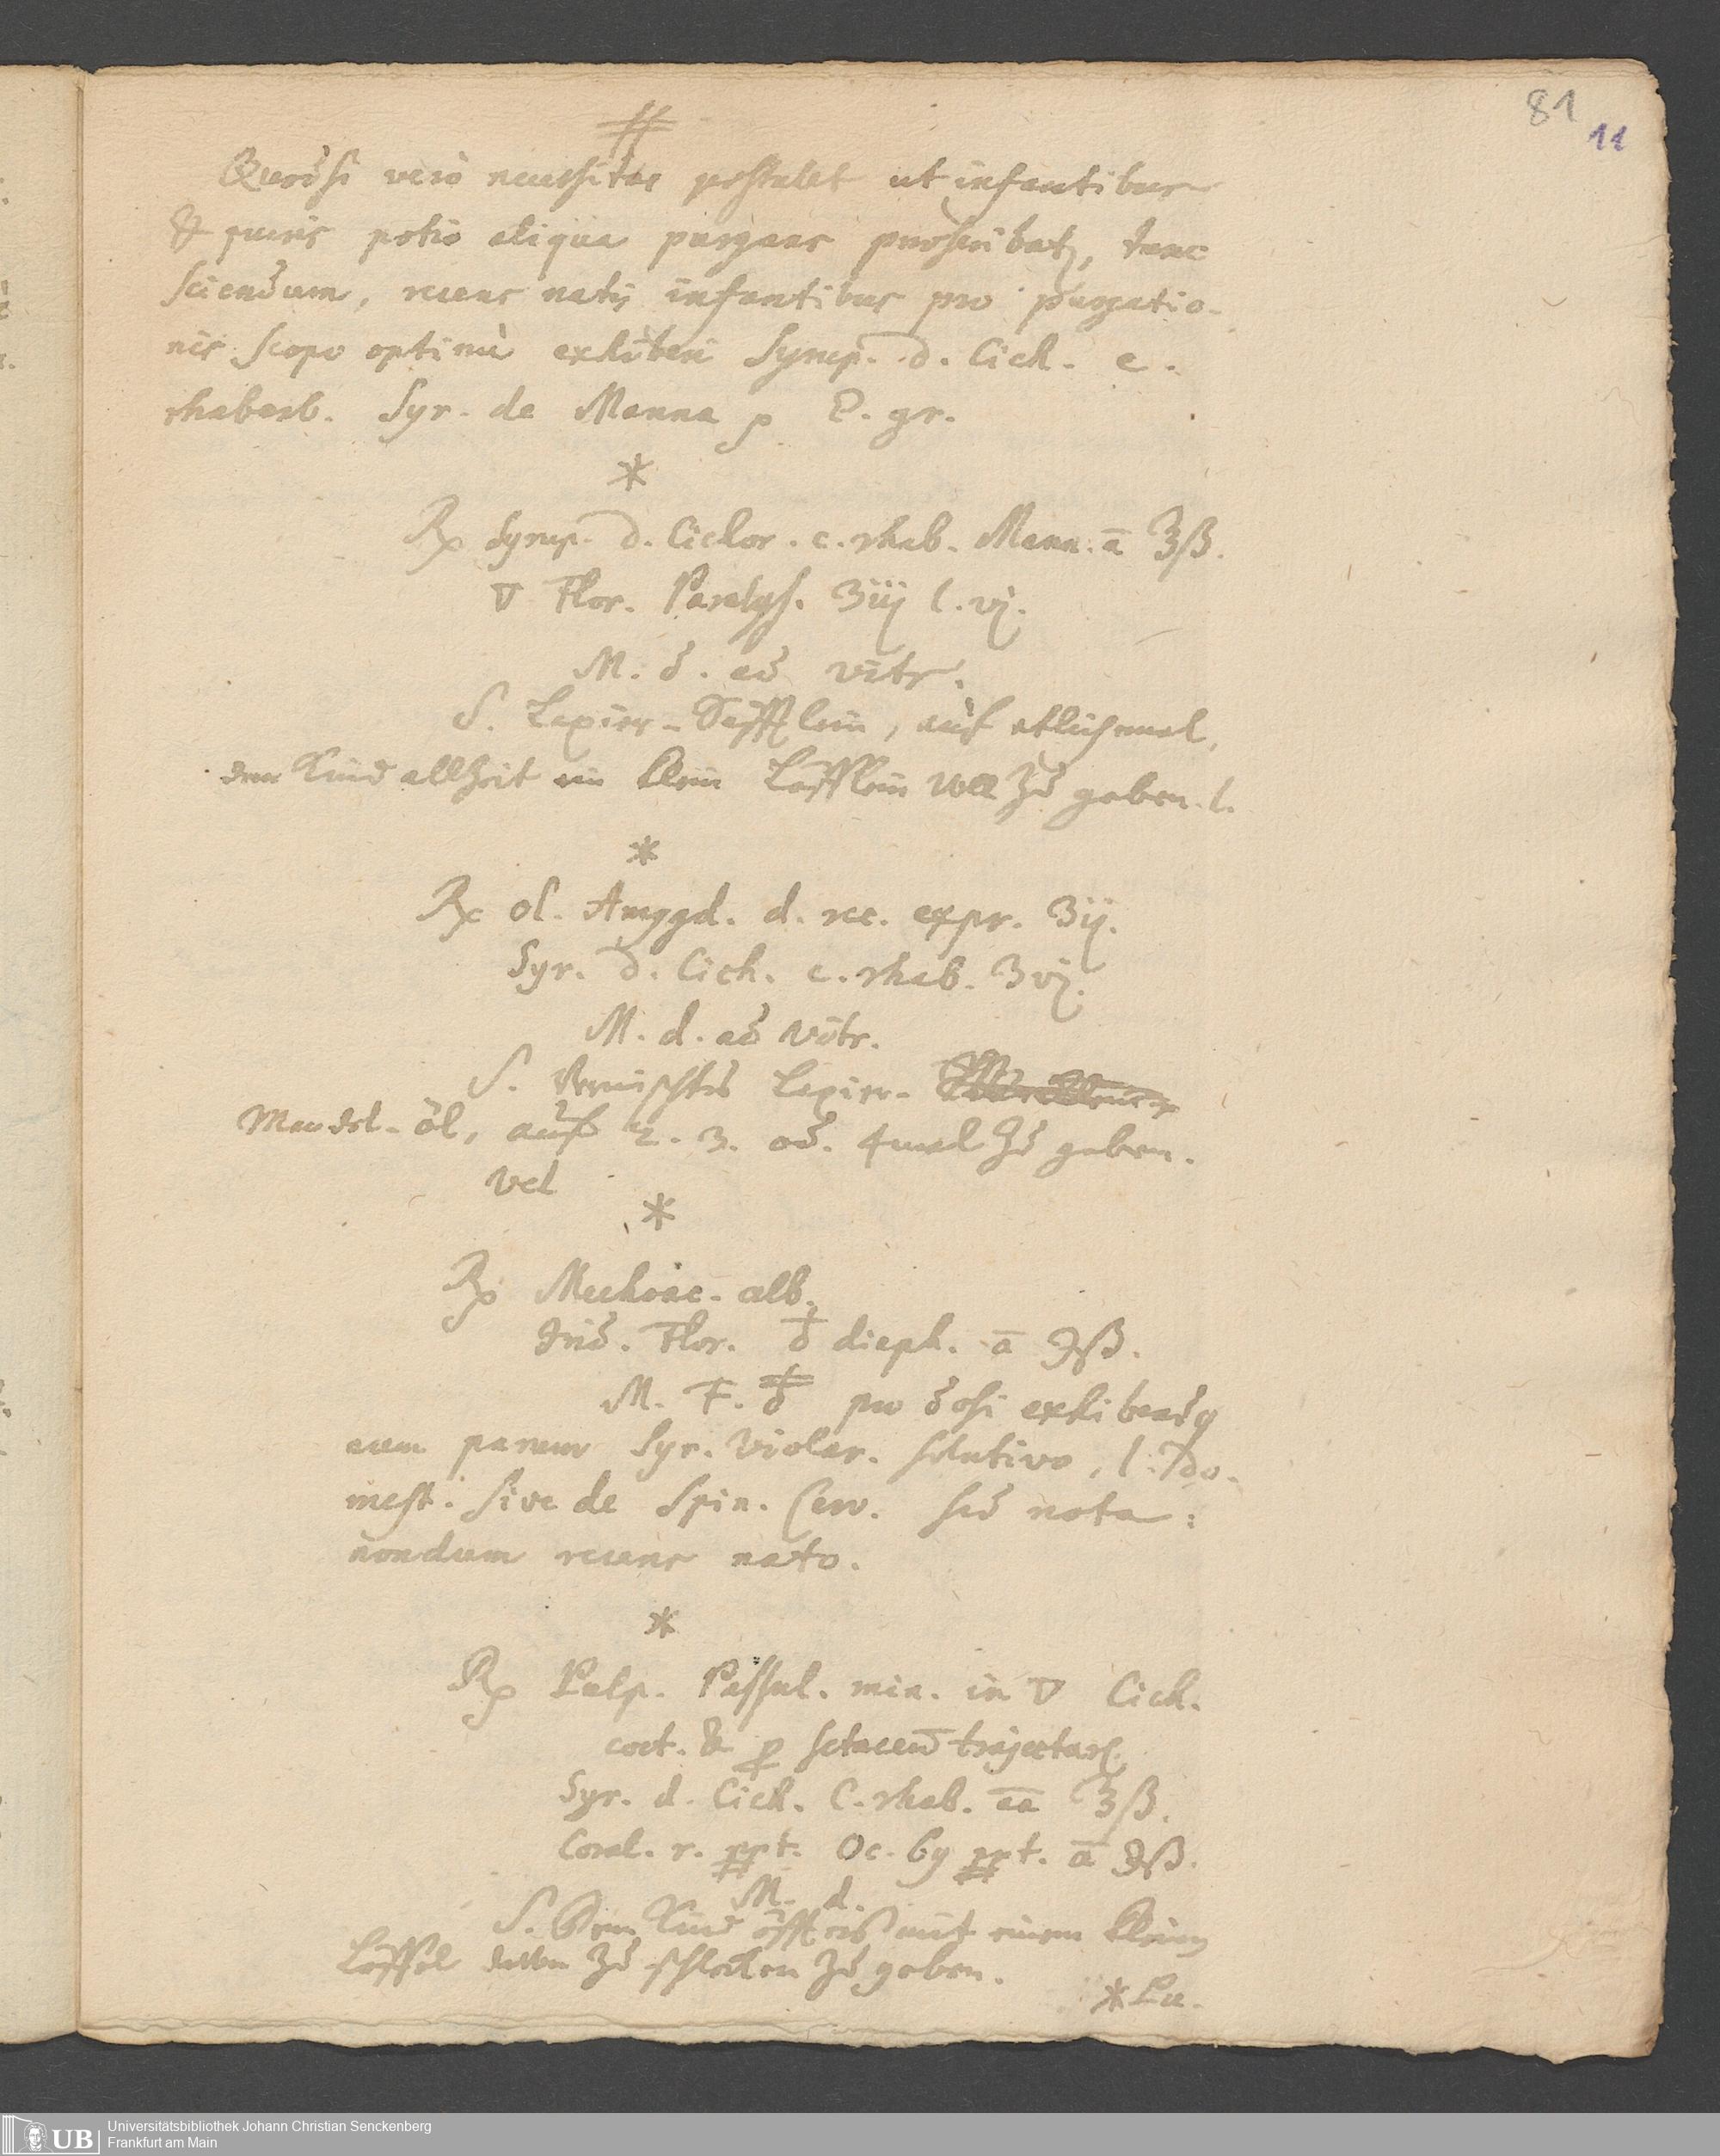 81
11
#
Quodsi verò necessitas postulet ut infantibus
& pueris potio aliqua purgans praescribatʒ, tunc
sciendum, recens natis infantibus pro purgatio-
nis scopo optimè exhiberi Syrup. d. Cich. c.
rhabarb. Syr. de Manna p E. gr.
*
℞ Syrup. d. Cichor. c. rhab. Mann. ā ℥ß.
🜄 Flor. Paralys. ʒiij l. vj.
M. d. ad vitr.
S. Laxier-Säfftlein, auf etlichmal,
dem Kind allzeit ein klein Löfflein voll zu geben. l.
*
℞ Ol. Amygd. d. rec. expr. ʒij.
Syr. d. Cich. c. rhab. ʒvj.
M. d. ad vitr.
S. Vermischtes Laxier-
Mandel-öl, auf 2. 3. od. 4mal zu geben.
vel
*
℞ Mechoac. alb.
Irid. Flor. ♁ diaph. ā ℈ß.
M. F. pro dosi exhibeadq
cum parum Syr. Violar. solutivo, l. Do-
mest. sive de Spin. Cerv. sed nota:
nondum recens nato.
*
℞ Pulp. Passul. min. in 🜄 Cich.
coct. & p setaceū trajectar.
Syr. d. Cich. C. rhab. āā ℥ß.
Coral. r. ppt. Oc. 69 ppt. ā ℈ß.
M. d.
S. Dem Kind öffters mit einem kleinen
Löffel davon zu schlecken zu geben.
* Lu.
Universitätsbibliothek Johann Christian Senckenberg
Frankfurt am Main
UB